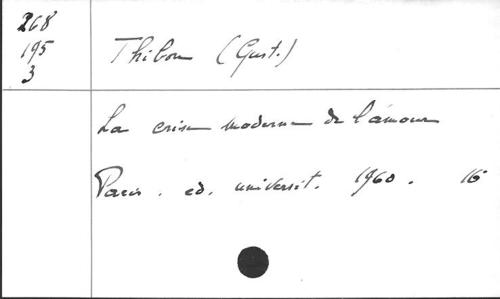 268
195
3
Thibon (Gust.)
La crise moderne de l'amour
Paris. ed. universit. 1960. 16